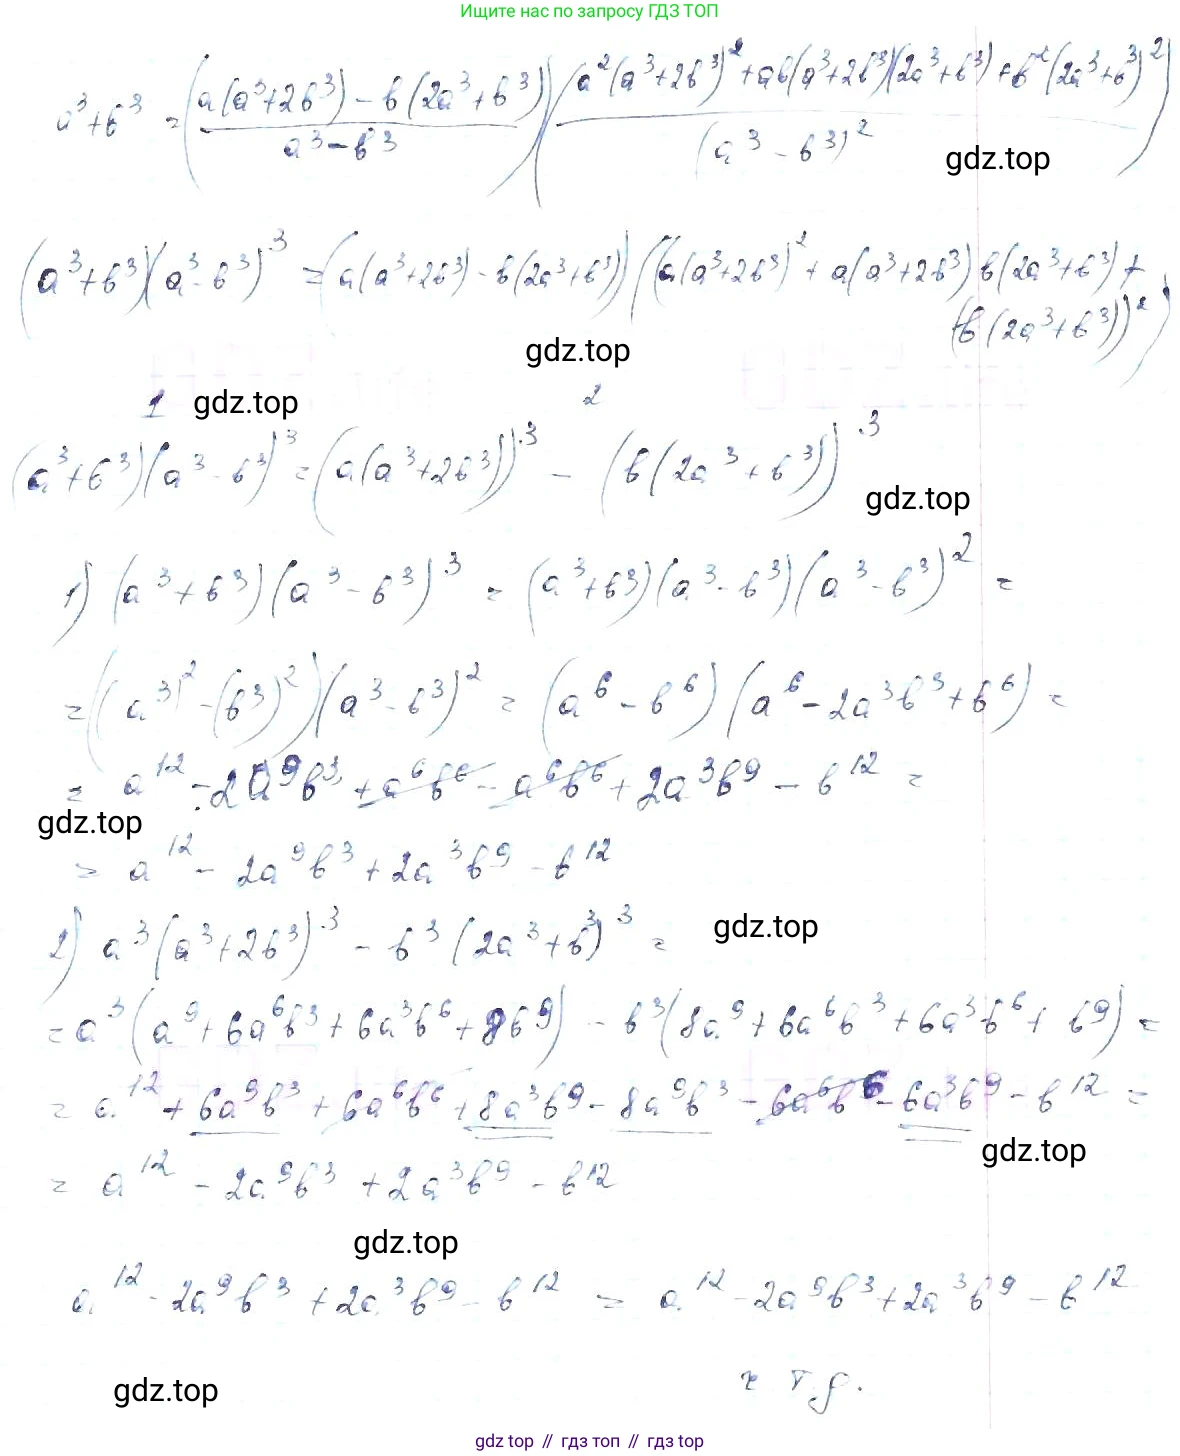 Ищите нас по запросу ГДЗ ТОП
a³+b³ = (a(a³+2b³) - b(2a³+b³) / a³-b³)(a²(a³+2b³)² + ab(a³+2b³)(2a³+b³) + b²(2a³+b³)² / (a³-b³)²)
gdz.top
(a³+b³)(a³-b³)³ = (a(a³+2b³) - b(2a³+b³))((a(a³+2b³)² + a(a³+2b³) b(2a³+b³) +
+(b(2a³+b³))²)
gdz.top
1 gdz.top 2
(a³+b³)(a³-b³)³ = (a(a³+2b³))³ - (b(2a³+b³))³
gdz.top
1) (a³+b³)(a³-b³)³ = (a³+b³)(a³-b³)(a³-b³)² =
= ((a³)² - (b³)²)(a³-b³)² = (a⁶-b⁶)(a⁶-2a³b³+b⁶) =
= a¹² - 2a⁹b³ + a⁶b⁶ - a⁶b⁶ + 2a³b⁹ - b¹² =
gdz.top
= a¹² - 2a⁹b³ + 2a³b⁹ - b¹²
2) a³(a³+2b³)³ - b³(2a³+b³)³ =
gdz.top
= a³(a⁹+6a⁶b³+6a³b⁶+8b⁹) - b³(8a⁹+6a⁶b³+6a³b⁶+b⁹) =
= a¹² + 6a⁹b³ + 6a⁶b⁶ + 8a³b⁹ - 8a⁹b³ - 6a⁶b⁶ - 6a³b⁹ - b¹² =
gdz.top
= a¹² - 2a⁹b³ + 2a³b⁹ - b¹²
gdz.top
a¹² - 2a⁹b³ + 2a³b⁹ - b¹² = a¹² - 2a⁹b³ + 2a³b⁹ - b¹²
ч т д.
gdz.top
gdz top // гдз топ // gdz top